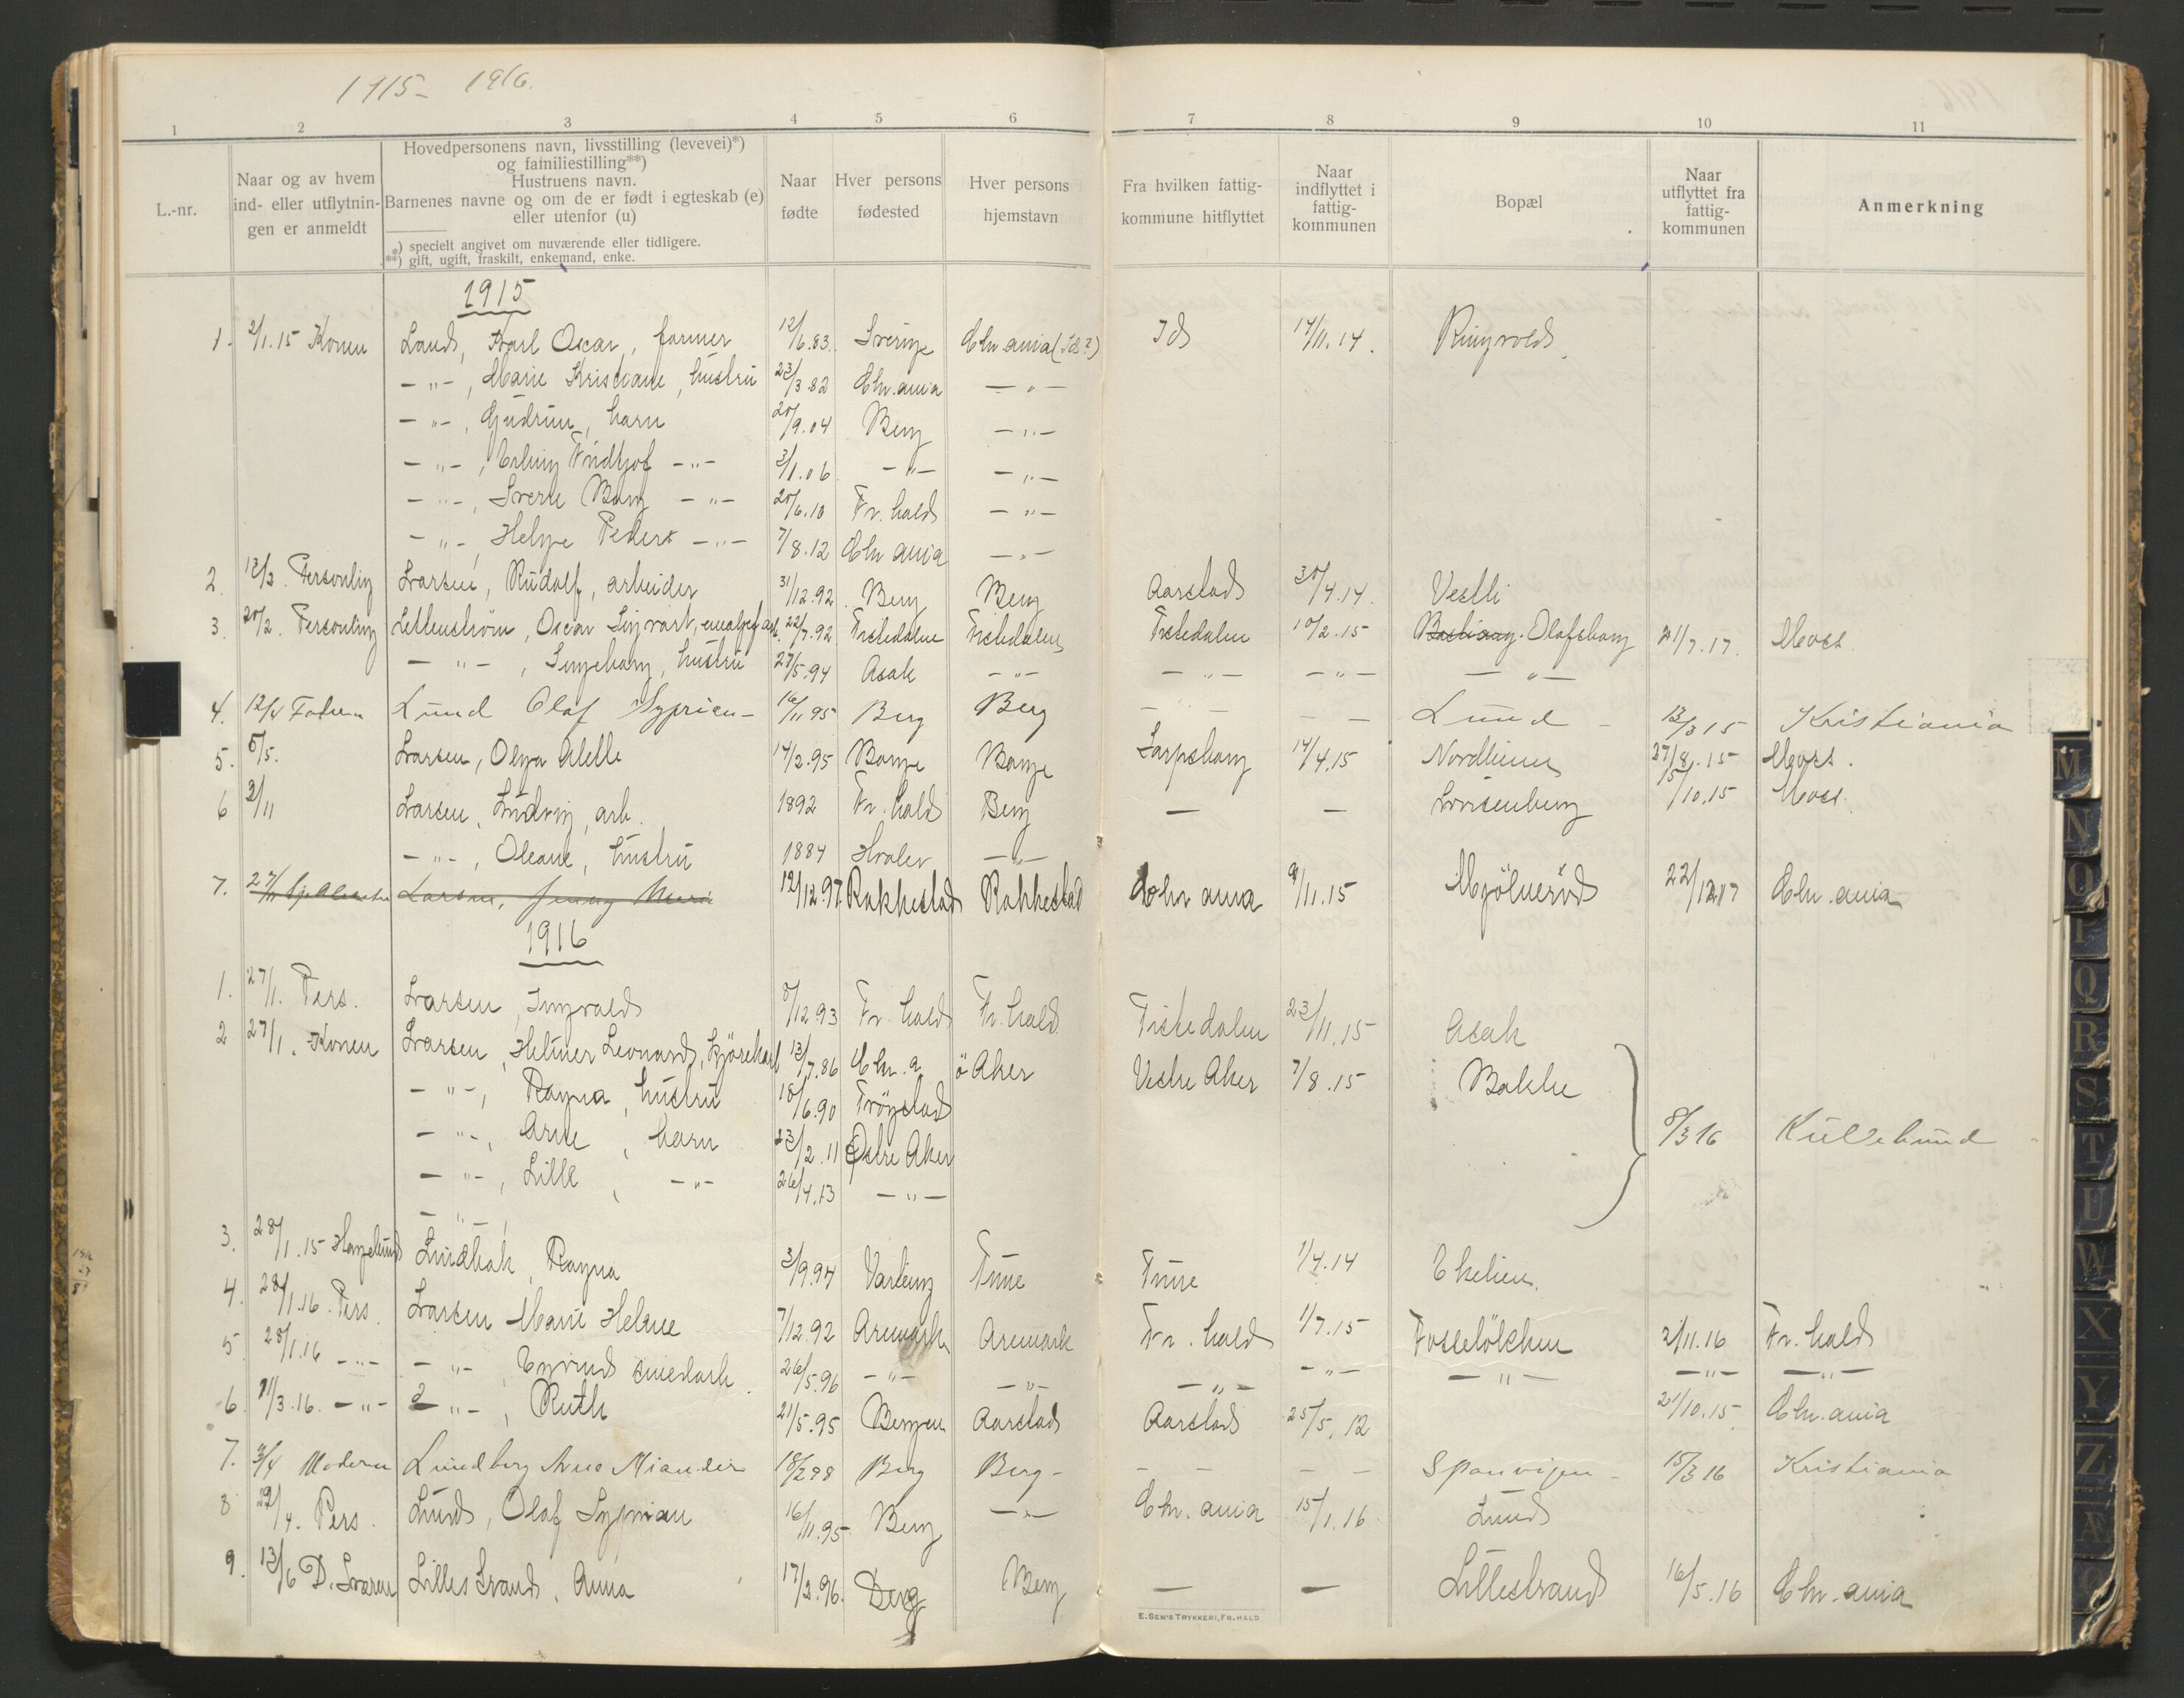 1915- 1916.
1 2 3 4 5 6 7 8 9 10 11
L.-nr.
Naar og av hvem ind- eller utflytnin- gen er anmeldt
Hovedpersonens navn, livsstilling (levevei)*)
og familiestilling**)
Hustruens navn.
Barnenes navne og om de er født i egteskab (e)
eller utenfor (u)
*) specielt angivet om nuværende eller tidligere.
**) gift, ugift, fraskilt, enkemand, enke.
Naar fødte
Hver persons fødested
Hver persons hjemstavn
Fra hvilken fattig- kommune hitflyttet
Naar indflyttet i fattig- kommunen
Bopæl
Naar utflyttet fra fattig- kommunen
Anmerkning
1915
1. 2/1.15 Konen Lund, Karl Oscar, former 12/6.83. Sverige Chr.ania (Id?) Id 14/11.14. Ringvold
-"-, Marie Kristiane, hustru 23/3 82 Chr.ania -"-
-"-, Gudrun, barn 20/9.04 Berg -"-
-"-, Erling Fridtjof -"- 3/1.06 -"- -"-
-"-, Sverre Borg -"- 20/6.10 Fr.hald -"-
-"-, Helge Peder -"- 7/8.12 Chr ania -"-
2. 13/2. Personlig Larsen, Rudolf, arbeider 31/12.92. Berg Berg Aarstad 30/4.14. Vestli
3. 20/2. Personlig Lettenstrøm, Oscar Sigvart, 22/7.92 Tistedalen Tistedalen Tistedalen 10/2.15 Olafsborg 21/7.17. Moss.
-"-, Ingeborg, hustru 27/5.94 Asak -"- -"- -"- -"-
4. 12/4 Faderen Lund Olaf Syprian- 16/11 95 Berg Berg - - - - Lund - 13/3 15 Kristiania
5. 5/5. Larsen, Olga Alette 14/2.95 Borge Borge Sarpsborg 14/4.15 Nordheim 27/8.15 Moss.
6 2/11 Larsen, Ludvig, arb. 1892 Fr.hald Berg - - Lovisenberg 15/10.15 Moss.
-"-, Oleane, hustru 1884 Hvaler -"-
7. 27/11 Larsen, Jenny Marie 12/12.97. Rakkestad Rakkestad Chr ania 9/11.15 Mjölneröd 22/12.17 Chr.ania
1916
1. 27/1. Pers. Larsen, Ingvald 8/12 93 Fr.hald Fr.hald Tistedalen 23/11.15 Asak
2 27/1. Konen Larsen, Helmer Leonard, kjörekarl 13/7.86 Chr.a ö Aker Vestre Aker 7/8.15 Bakke
-"-, Ragna, hustru 18/6.90 Trögstad
-"-, Arne, barn 23/2.11 Østre Aker 8/3 16 Kullebund
-"-, Lille, -"- 26/4.13 -"-
-"-,
3. 28/1.15 Lindbak, Ragna 3/9.94 Varteig Tune Tune 1/4.14 Ekelien.
4. 28/1.16. Pers. Larsen Marie Helene 7/12.92 Aremark Aremark Fr.hald 1/7.15 Fosselökken 2/11.16 Fr.hald
5. 28/1.16 -"- -"- Eyvind smedarb. 26/5.96 -"- -"- -"- -"- -"- -"- -"-
6. 11/3.16. -"- -"-, Ruth 21/5.95 Bergen Aarstad Aarstad 25/5.12 21/10.15 Chr.ania
7. 3/4 Moderen Lundberg 18/2 98 Berg Berg- - - - - Sponvigen - 15/3 16 Kristiania
8 29/4. Pers. Lund, Olaf Syprian 16/11.95 Berg -"- Chr.ania 15/1.16 Lund
9. 13/6 D. Lillestrand, Anna 17/2.96. Berg Berg - - Lillestrand 16/5.16 Chr.ania
E. SEM'S TRYKKERI, FR.HALD
M
N
O
P
Q
R
S
T
U
W
X
Y
Z
Æ
Ø